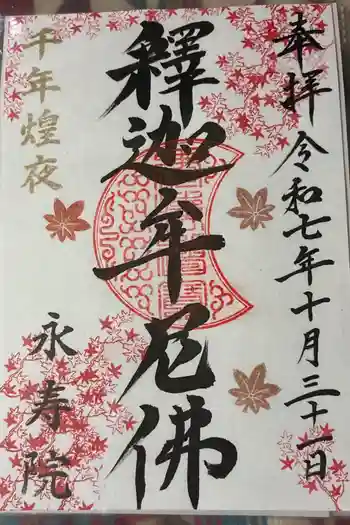 奉拝 令和七年十月三十一日
釋迦牟尼佛
千年煌夜
永寿院